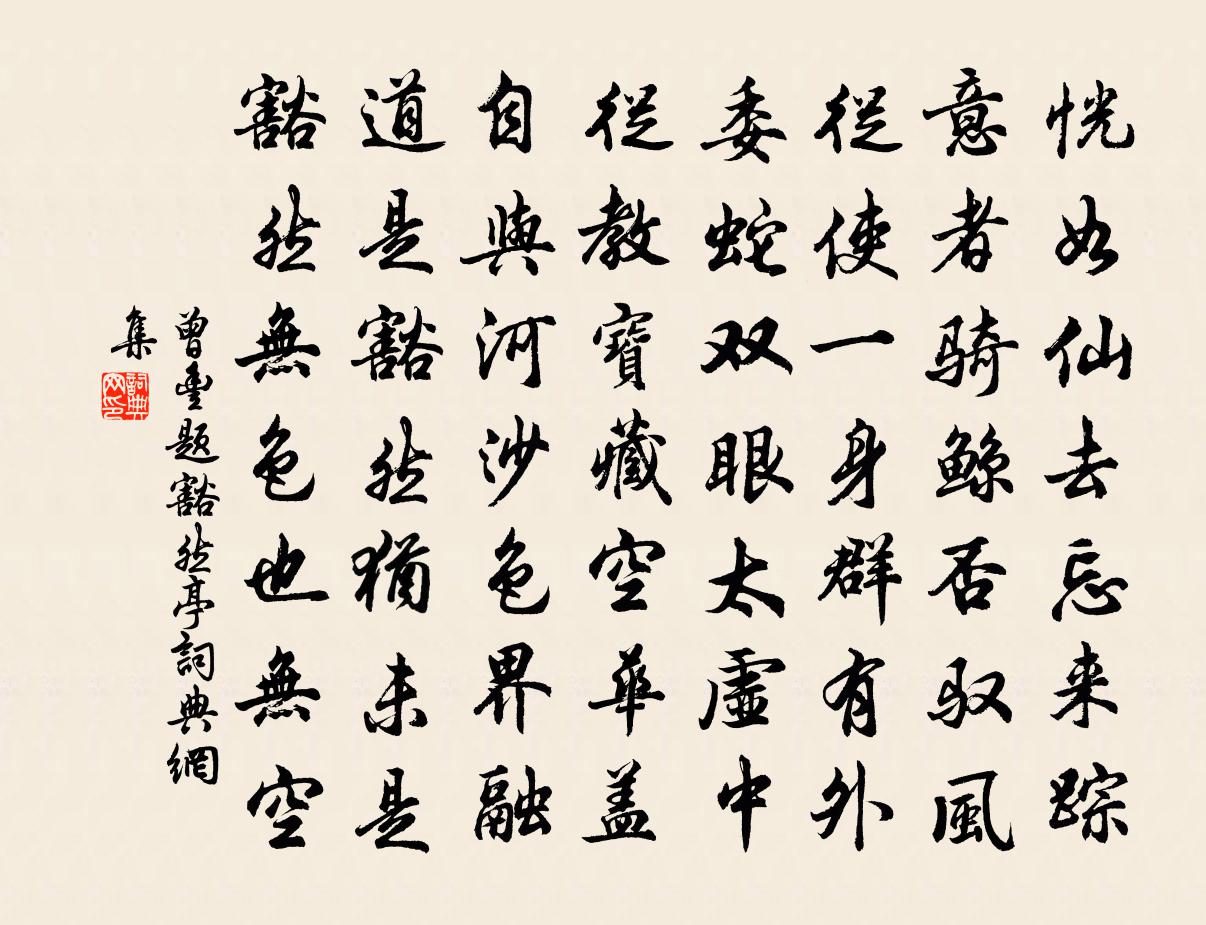 恍如仙去忘来踪
意者骑鲸否驭風
従使一身群有外
委蛇双眼太虚中
従教寶藏空華盖
自與河沙色界融
道是豁然猶未是
豁然無色也無空
曾豊题豁然亭詞典網
集
詞典
网印